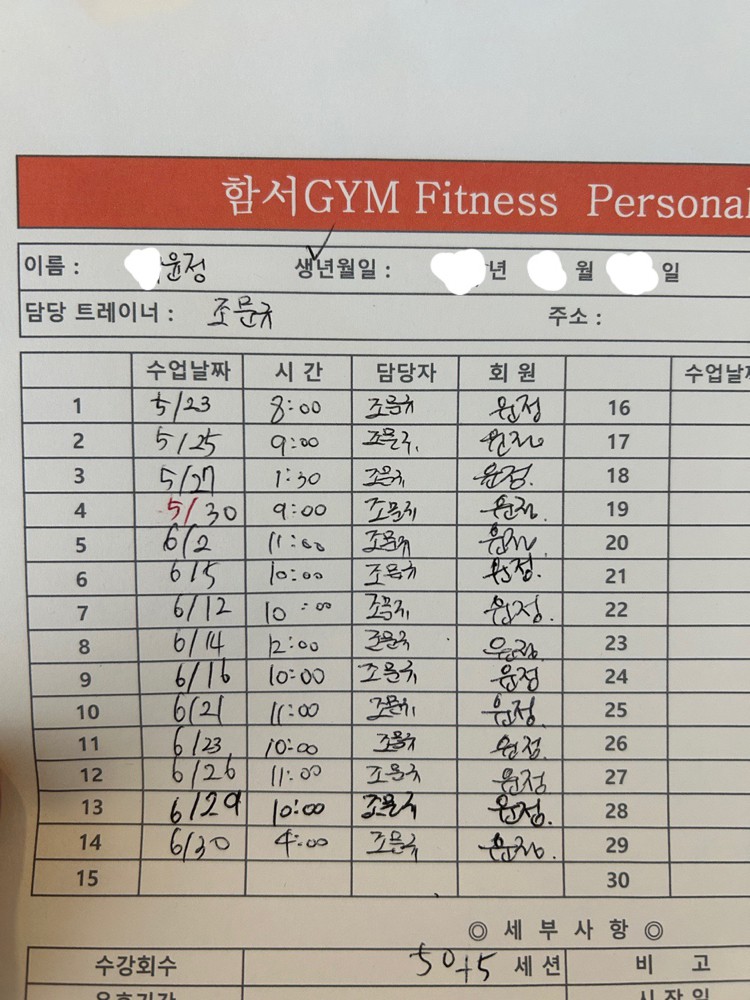 함서GYM Fitness Personal
이름 : 윤정 생년월일 : 년 월 일
담당 트레이너 : 조문규 주소 :
수업날짜 시 간 담당자 회 원 수업날짜
1 5/23 8:00 조문규 윤정 16
2 5/25 9:00 조문규 윤정 17
3 5/27 1:30 조문규 윤정 18
4 5/30 9:00 조문규 윤정 19
5 6/2 11:00 조문규 윤정 20
6 6/5 10:00 조문규 윤정 21
7 6/12 10:00 조문규 윤정 22
8 6/14 12:00 조문규 윤정 23
9 6/16 10:00 조문규 윤정 24
10 6/21 11:00 조문규 윤정 25
11 6/23 10:00 조문규 윤정 26
12 6/26 11:00 조문규 윤정 27
13 6/29 10:00 조문규 윤정 28
14 6/30 4:00 조문규 윤정 29
15 30
◎ 세 부 사 항 ◎
수강회수 50+5 세션 비 고